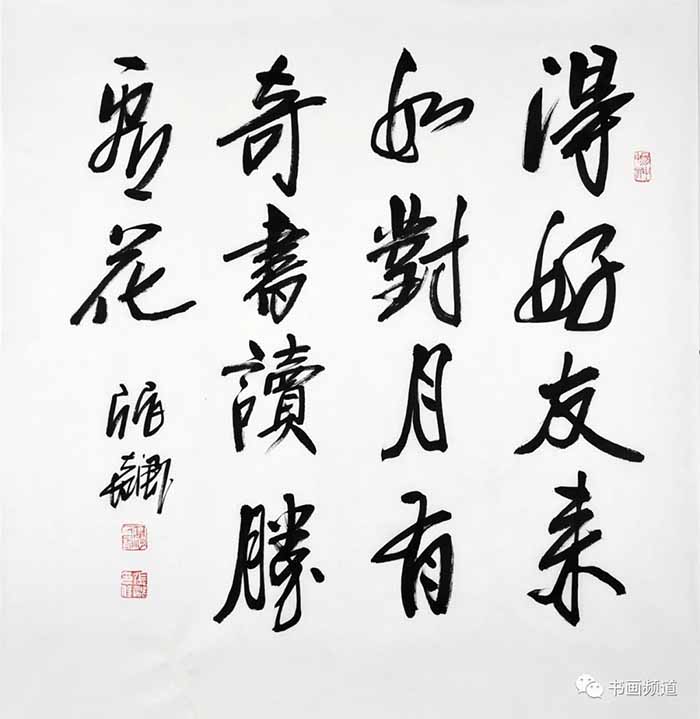 得好友来
如對月有
奇書讀勝
看花
书画频道